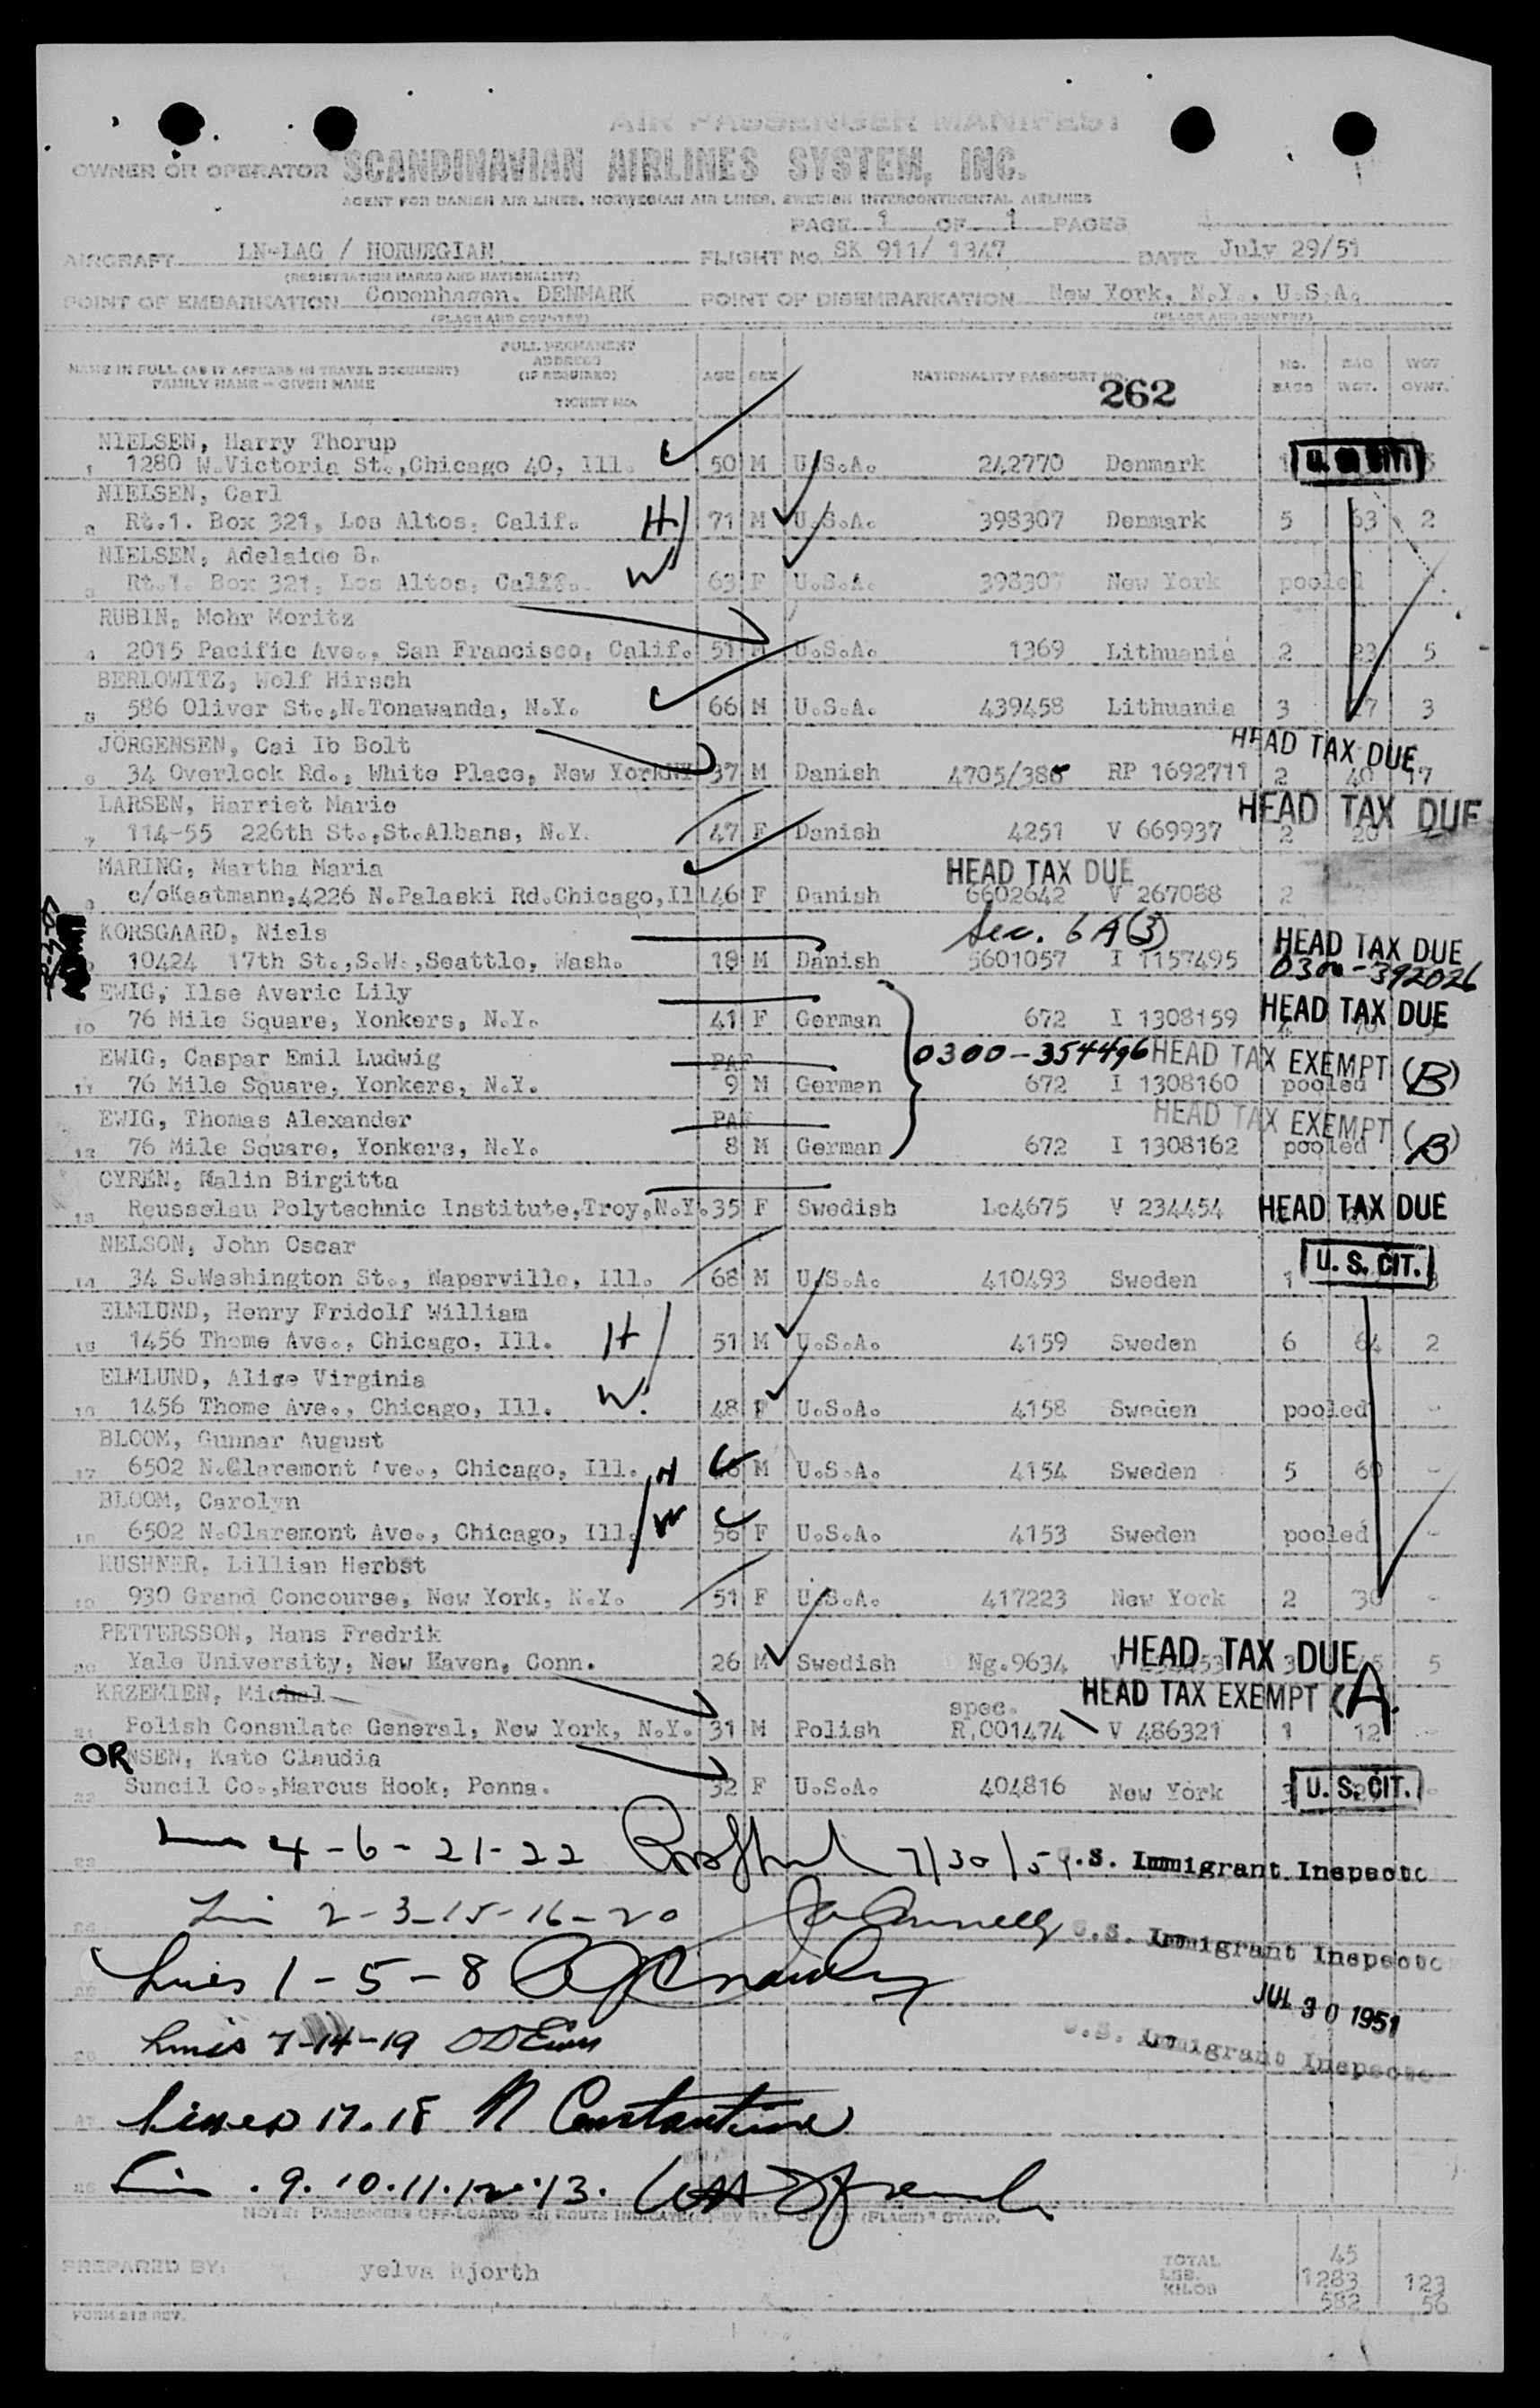 AIR PASSENGER MANIFEST
OWNER OR OPERATOR SCANDINAVIAN AIRLINES SYSTEM, INC.
AGENT FOR DANISH AIR LINES, NORWEGIAN AIR LINES, SWEDISH INTERCONTINENTAL AIRLINES
PAGE 1 OF 1 PAGES
AIRCRAFT LN-LAG / NORWEGIAN FLIGHT NO. SK 911/ 1347 DATE July 29/51
(REGISTRATION MARKS AND NATIONALITY)
POINT OF EMBARKATION Copenhagen, DENMARK POINT OF DISEMBARKATION New York, N.Y., U.S.A.
(PLACE AND COUNTRY) (PLACE AND COUNTRY)
NAME IN FULL (AS IT APPEARS IN TRAVEL DOCUMENT) FAMILY NAME - GIVEN NAME
FULL PERMANENT ADDRESS (IF REQUIRED) TICKET NO.
AGE SEX NATIONALITY PASSPORT NO. NO. BAGS BAG WGT. WGT OVWT.
262
NIELSEN, Harry Thorup
1 1280 W.Victoria St.,Chicago 40, Ill. 50 M U.S.A. 242770 Denmark 1
NIELSEN, Carl
2 Rt.1. Box 321, Los Altos, Calif. H 71 M U.S.A. 398307 Denmark 5 63 2
NIELSEN, Adelaide B.
3 Rt.1. Box 321, Los Altos, Calif. W 63 F U.S.A. 398307 New York pooled
RUBIN, Mohr Moritz
4 2015 Pacific Ave., San Francisco, Calif. 51 M U.S.A. 1369 Lithuania 2 23 5
BERLOWITZ, Wolf Hirsch
5 586 Oliver St.,N.Tonawanda, N.Y. 66 M U.S.A. 439458 Lithuania 3 27 3
JÖRGENSEN, Cai Ib Bolt HEAD TAX DUE
6 34 Overlook Rd., White Place, New York 37 M Danish 4705/386 RP 1692711 2 40 17
LARSEN, Harriet Marie HEAD TAX DUE
7 114-55 226th St.,St.Albans, N.Y. 47 F Danish 4251 V 669937 2 20
MARING, Martha Maria HEAD TAX DUE
8 c/oKaatmann,4226 N.Palaski Rd.Chicago,Ill 46 F Danish 6602642 V 267088 2
KORSGAARD, Niels Sec. 6A(3) HEAD TAX DUE
10424 17th St.,S.W.,Seattle, Wash. 18 M Danish 5601057 I 1157495 0300-392026
EWIG, Ilse Averic Lily
10 76 Mile Square, Yonkers, N.Y. 41 F German 672 I 1308159 HEAD TAX DUE
EWIG, Caspar Emil Ludwig 0300-354496 HEAD TAX EXEMPT (B)
11 76 Mile Square, Yonkers, N.Y. 9 M German 672 I 1308160 pooled
EWIG, Thomas Alexander HEAD TAX EXEMPT (B)
12 76 Mile Square, Yonkers, N.Y. 8 M German 672 I 1308162 pooled
CYRÉN, Malin Birgitta
13 Reusselau Polytechnic Institute,Troy,N.Y. 35 F Swedish Le4675 V 234454 HEAD TAX DUE
NELSON, John Oscar U. S. CIT.
14 34 S.Washington St., Naperville, Ill. 68 M U.S.A. 410493 Sweden 1
ELMLUND, Henry Fridolf William
15 1456 Thome Ave., Chicago, Ill. H 51 M U.S.A. 4159 Sweden 6 64 2
ELMLUND, Alise Virginia
16 1456 Thome Ave., Chicago, Ill. W. 48 F U.S.A. 4158 Sweden pooled -
BLOOM, Gunnar August
17 6502 N.Claremont Ave., Chicago, Ill. H M U.S.A. 4154 Sweden 5 60 -
BLOOM, Carolyn
18 6502 N.Claremont Ave., Chicago, Ill. W 56 F U.S.A. 4153 Sweden pooled -
KUSHNER, Lillian Herbst
19 930 Grand Concourse, New York, N.Y. 51 F U.S.A. 417223 New York 2 30 -
PETTERSSON, Hans Fredrik HEAD TAX DUE
20 Yale University, New Haven, Conn. 26 M Swedish Ng.9634 3 5
KRZEMIEN, Michal spec. HEAD TAX EXEMPT (A.
21 Polish Consulate General, New York, N.Y. 31 M Polish R.001474 V 486321 1 12 -
ORNSEN, Kate Claudia
22 Sunoil Co.,Marcus Hook, Penna. 32 F U.S.A. 404816 New York 3 U. S. CIT. -
23 4-6-21-22 7/30/51 U.S. Immigrant Inspecto
24 2-3-15-16-20 U.S. Immigrant Inspecto
25 Lines 1-5-8
JUL 30 1951
26 Lines 7-14-19 U.S. Immigrant Inspecto
27 Lines 17.18 N Constantine
28 9.10.11.12.13.
NOTE: PASSENGERS OFF-LOADED EN ROUTE INDICATED BY RED "OFF AT (PLACE)" STAMP.
PREPARED BY: yelva Hjorth TOTAL 45
LBS. 1283 123
KILOS 582 56
FORM 218 REV.